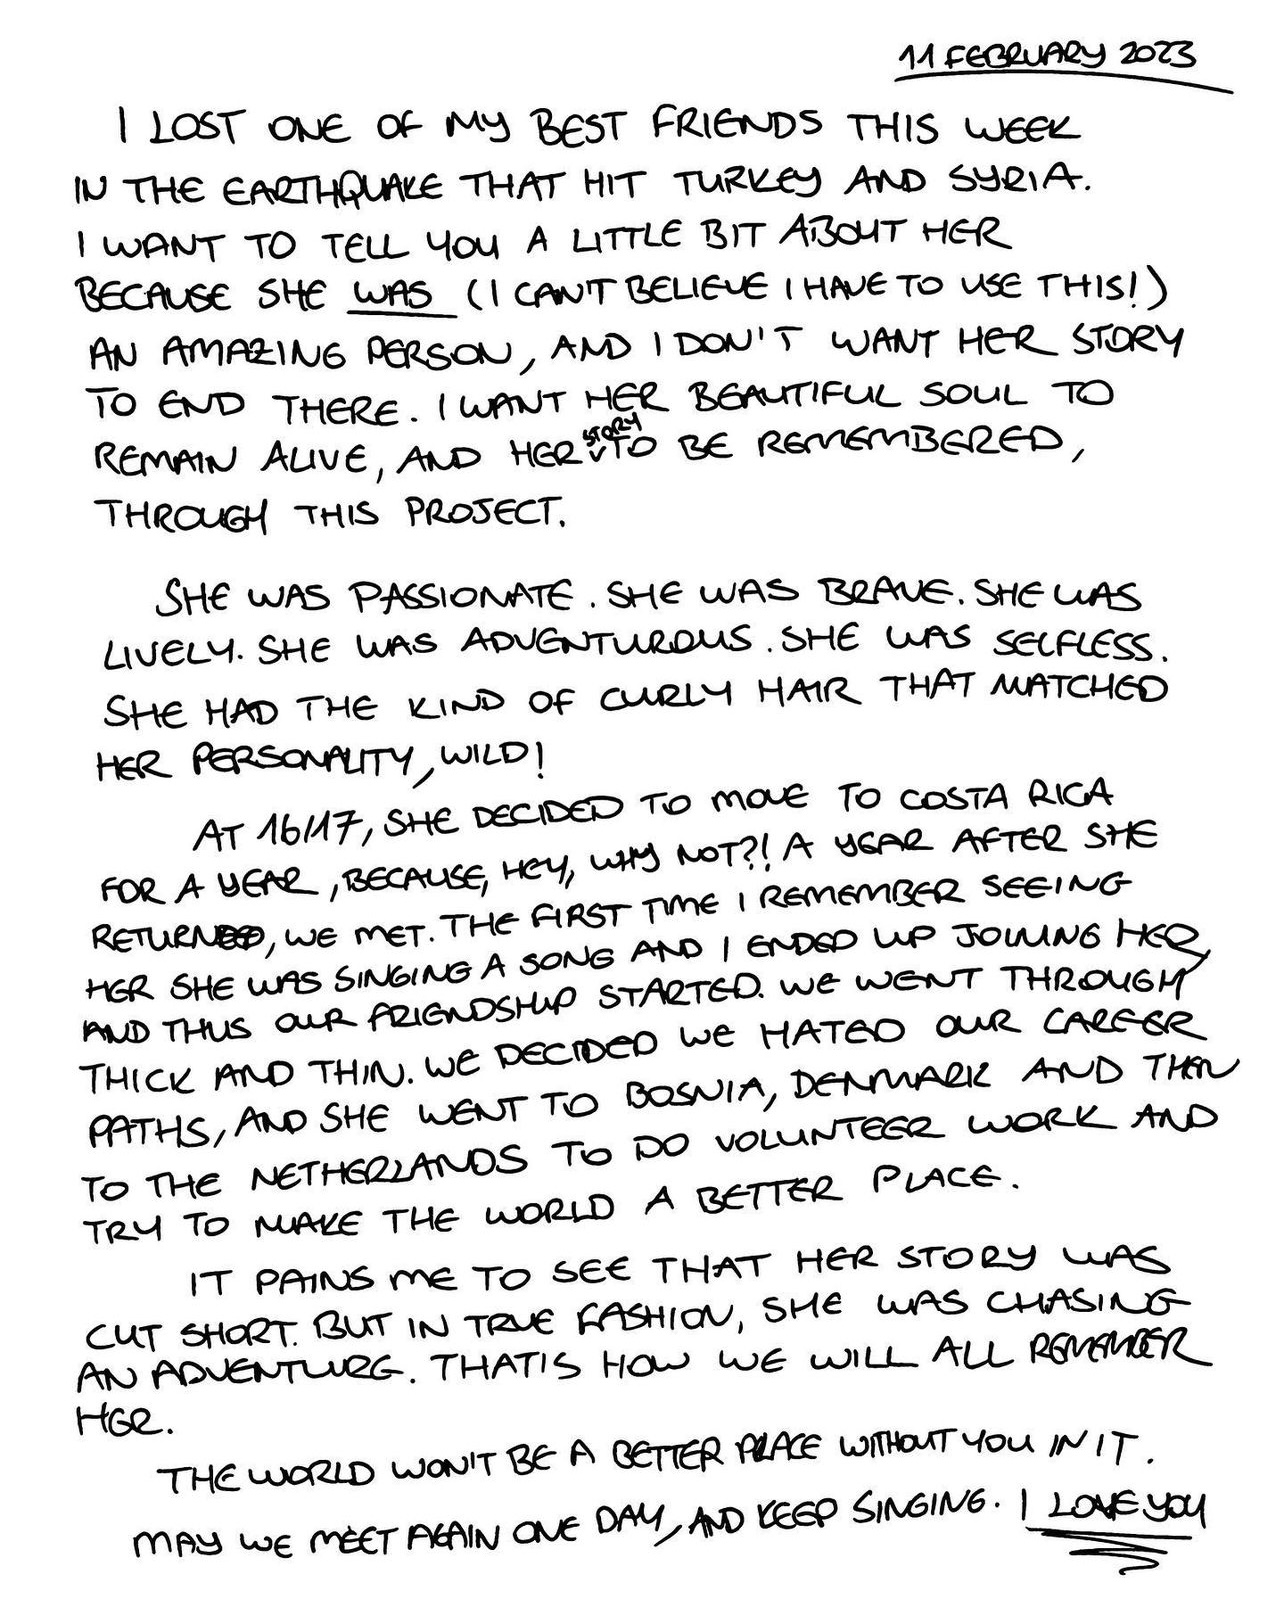 11 FEBRUARY 2023
I LOST ONE OF MY BEST FRIENDS THIS WEEK
IN THE EARTHQUAKE THAT HIT TURKEY AND SYRIA.
I WANT TO TELL YOU A LITTLE BIT ABOUT HER
BECAUSE SHE WAS (I CAN'T BELIEVE I HAVE TO USE THIS!)
AN AMAZING PERSON, AND I DON'T WANT HER STORY
TO END THERE. I WANT HER BEAUTIFUL SOUL TO
REMAIN ALIVE, AND HER STORY TO BE REMEMBERED,
THROUGH THIS PROJECT.
SHE WAS PASSIONATE. SHE WAS BRAVE. SHE WAS
LIVELY. SHE WAS ADVENTUROUS. SHE WAS SELFLESS.
SHE HAD THE KIND OF CURLY HAIR THAT MATCHED
HER PERSONALITY, WILD!
AT 16/17, SHE DECIDED TO MOVE TO COSTA RICA
FOR A YEAR, BECAUSE, HEY, WHY NOT?! A YEAR AFTER SHE
RETURNED, WE MET. THE FIRST TIME I REMEMBER SEEING
HER SHE WAS SINGING A SONG AND I ENDED UP JOINING HER,
AND THUS OUR FRIENDSHIP STARTED. WE WENT THROUGH
THICK AND THIN. WE DECIDED WE HATED OUR CAREER
PATHS, AND SHE WENT TO BOSNIA, DENMARK AND THEN
TO THE NETHERLANDS TO DO VOLUNTEER WORK AND
TRY TO MAKE THE WORLD A BETTER PLACE.
IT PAINS ME TO SEE THAT HER STORY WAS
CUT SHORT. BUT IN TRUE FASHION, SHE WAS CHASING
AN ADVENTURE. THAT IS HOW WE WILL ALL REMEMBER
HER.
THE WORLD WON'T BE A BETTER PLACE WITHOUT YOU IN IT.
MAY WE MEET AGAIN ONE DAY, AND KEEP SINGING. I LOVE YOU